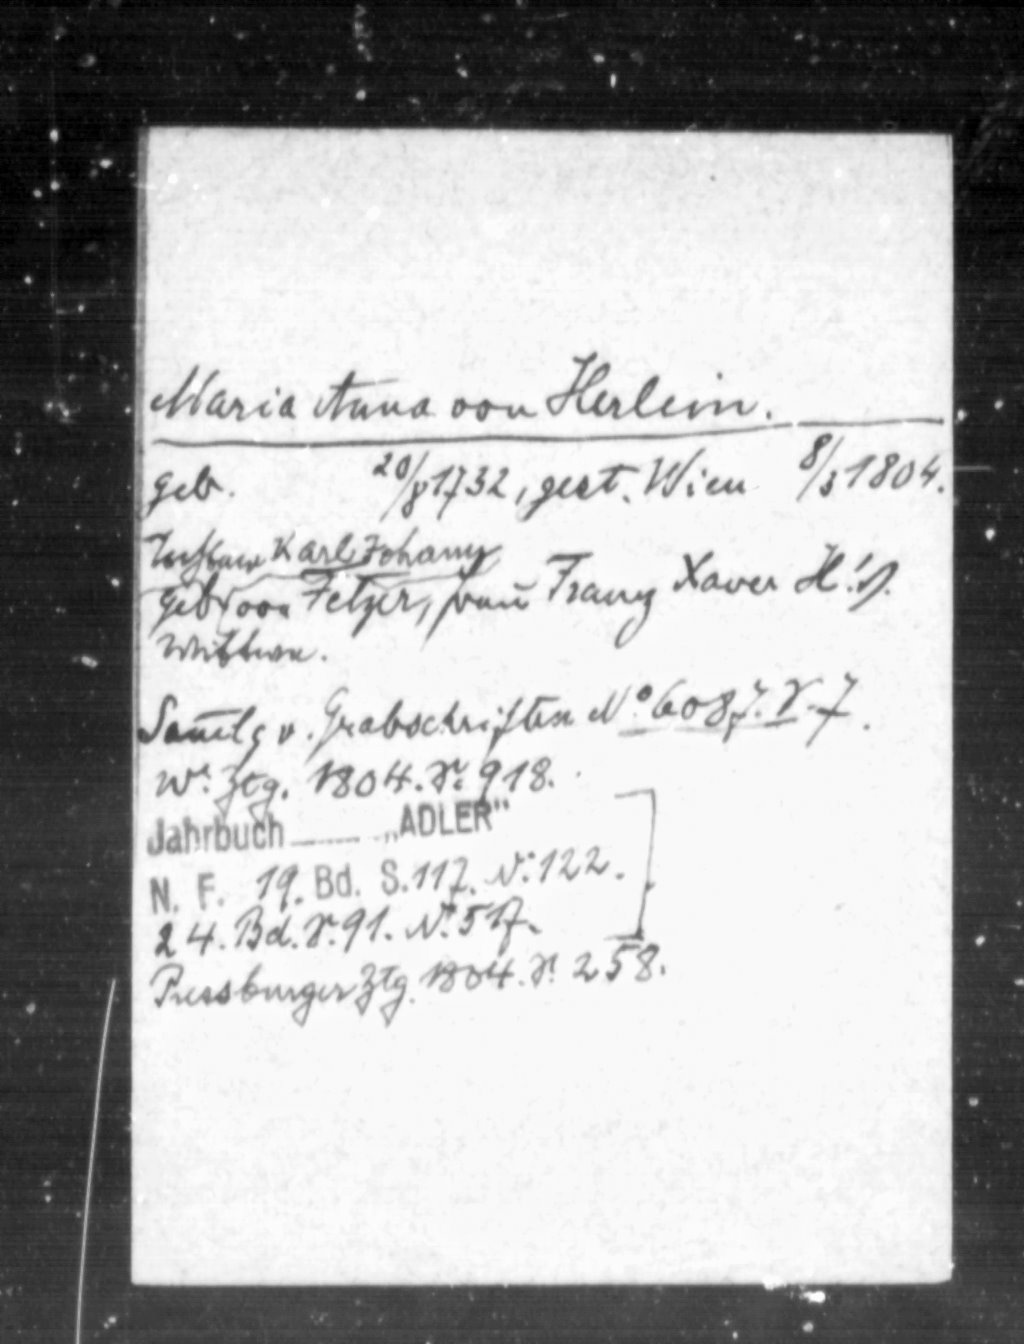 Maria Anna von Herlein.
geb. 20/8 1732, gest. Wien 8/3 1804.
Tochter Karl Johann
geb. von Fetzer, Franz Xaver H.'s
Wittwe.
Samlg v. Grabschriften No 6087. V. 7.
Wr. Ztg. 1804. S. 918.
Jahrbuch „ADLER"
N. F. 19. Bd. S. 117. N: 122.
24. Bd. S. 91. N. 517.
Pressburger Ztg. 1804. S. 258.